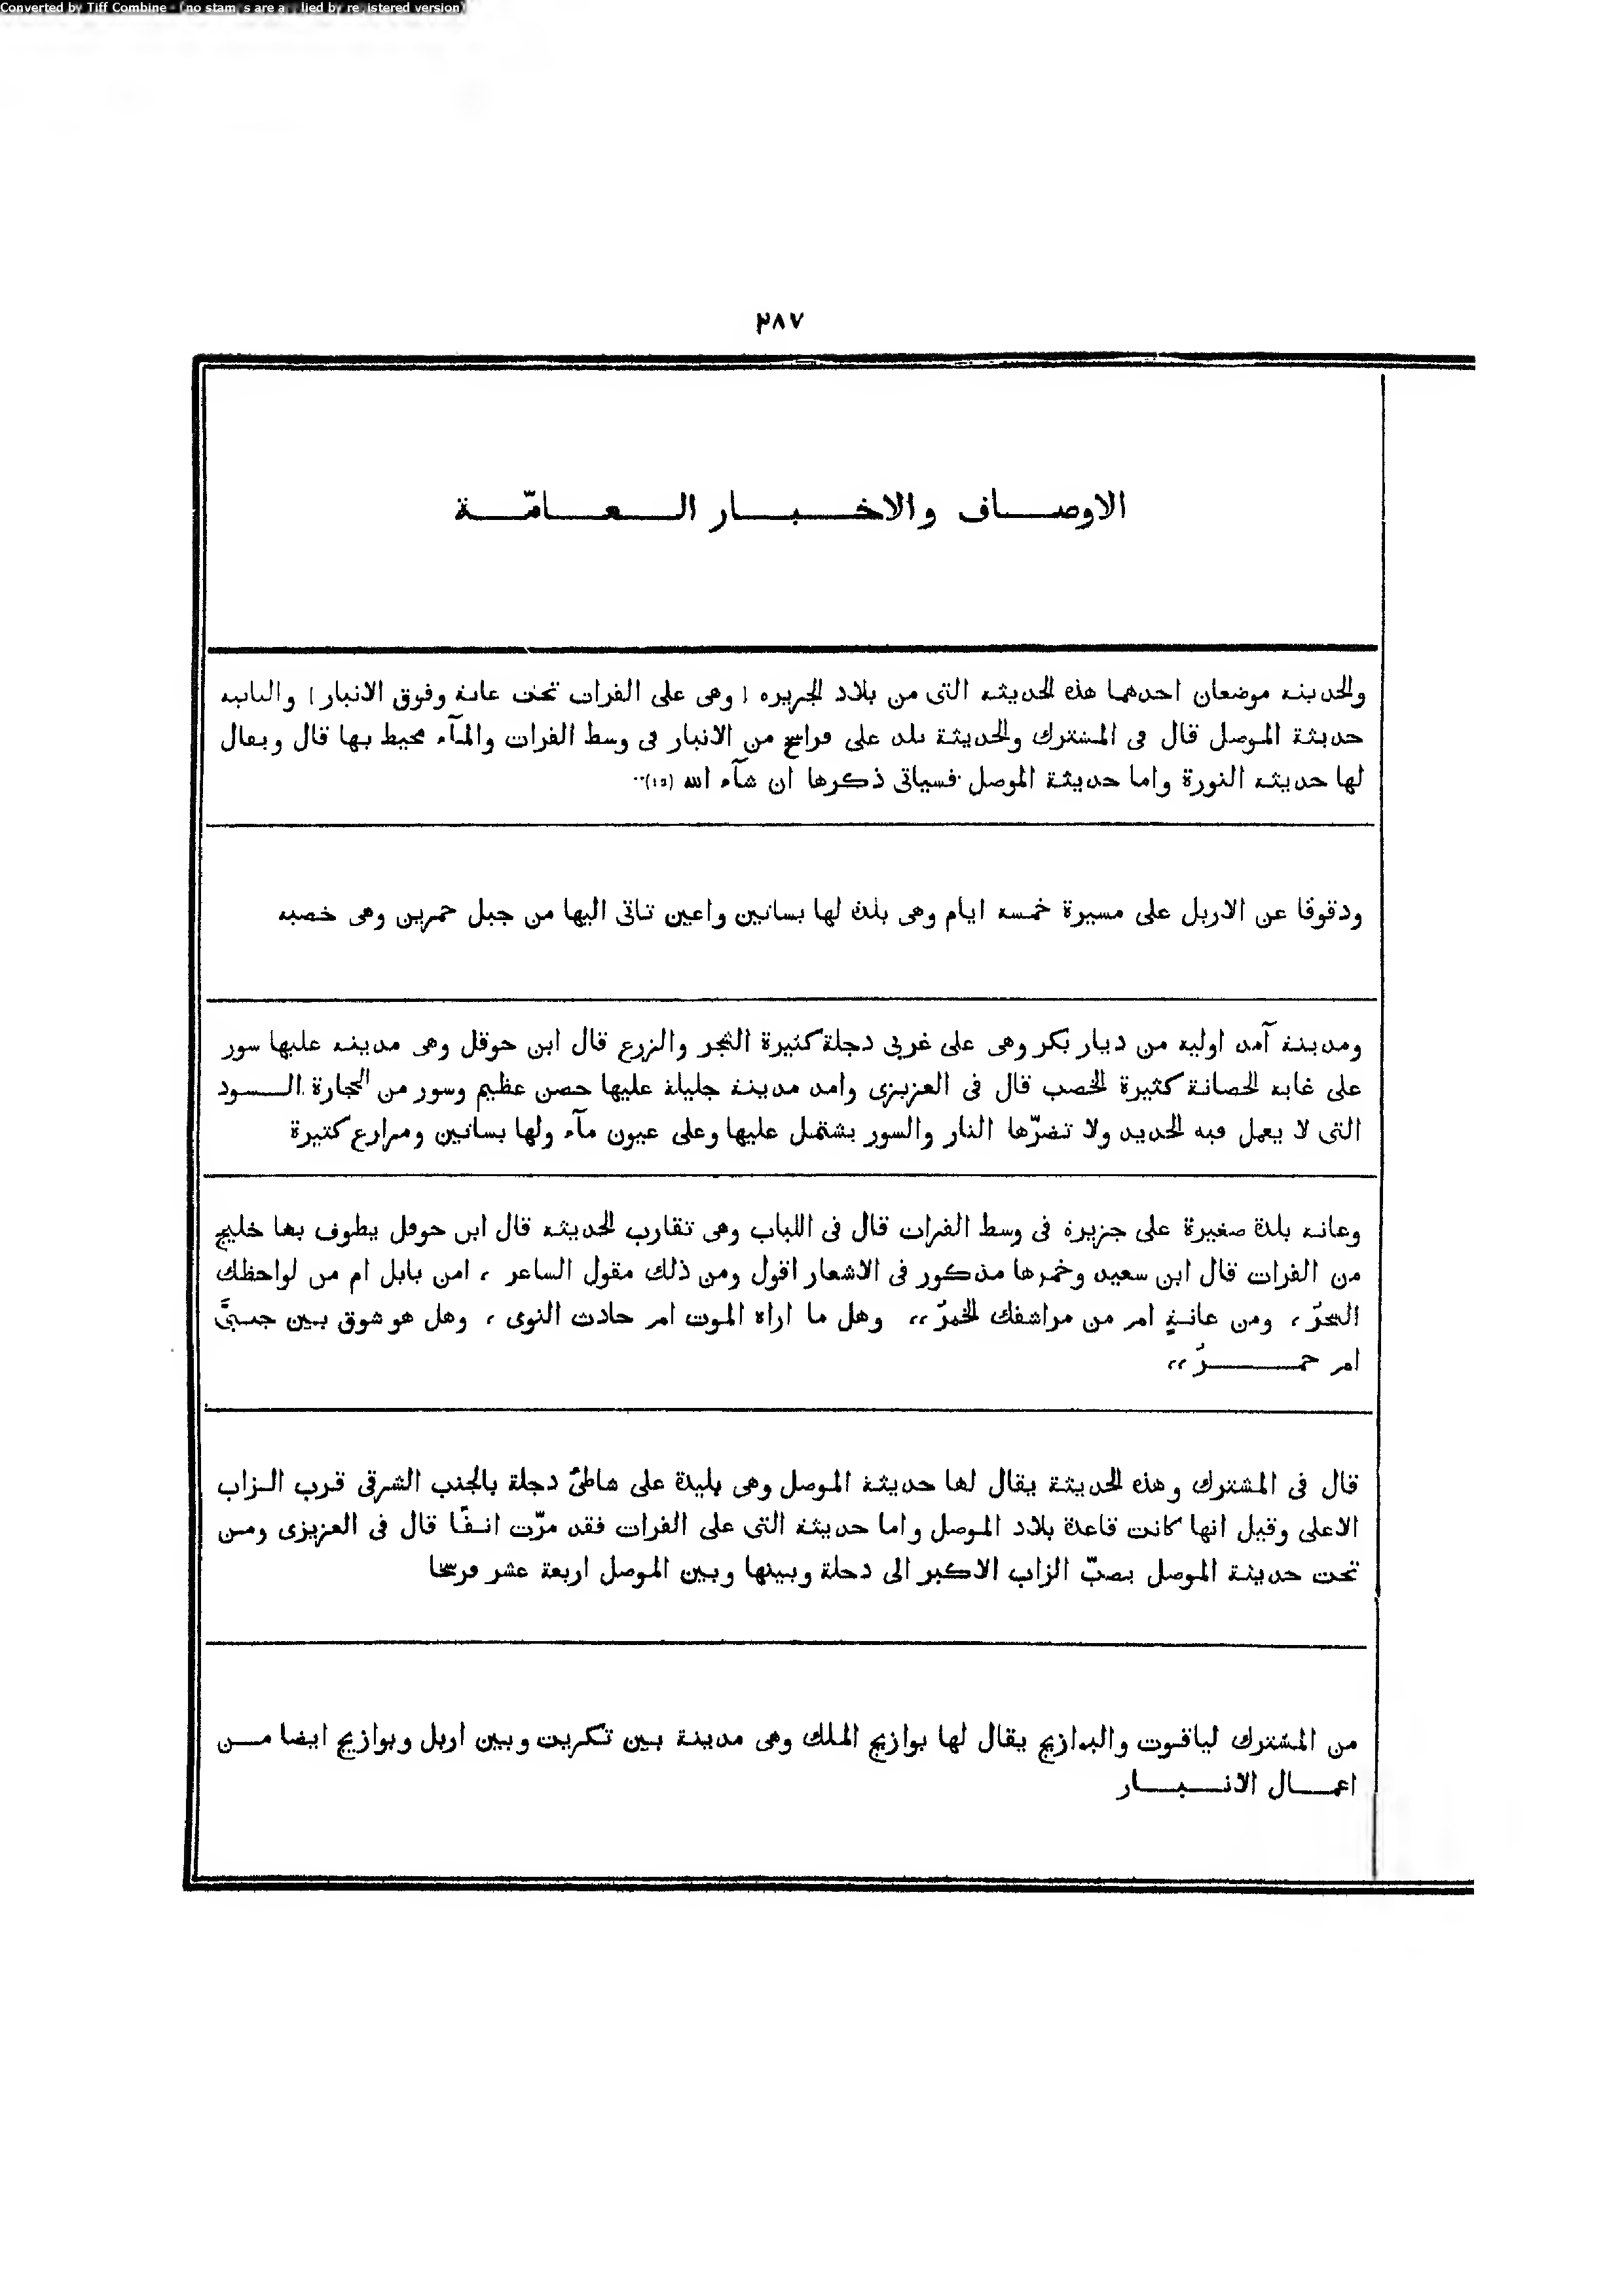 Converted by Tiff Combine - (no stamps are applied by registered version)
٢٨٧
الاوصاف والاخبار العامّة
والحديثة موضعان احدهما هذه الحديثة التى من بلاد الجزيرة (وهى على الفرات تحت عانة وفوق الانبار) والثانية
حديثة الموصل قال فى المشترك والحديثة بلد على فراسخ من الانبار فى وسط الفرات والمآء محيط بها قال ويقال
لها حديثة النورة واما حديثة الموصل فسياتى ذكرها ان شآء الله (١٥)
ودقوقا عن الاربل على مسيرة خمسة ايام وهى بلدة لها بساتين واعين تاتى اليها من جبل حمرين وهى خصبة
ومدينة آمد اولية من ديار بكر وهى على غربى دجلة كثيرة الشجر والزرع قال ابن حوقل وهى مدينة عليها سور
على غاية الحصانة كثيرة الخصب قال فى العزيزى وامد مدينة جليلة عليها حصن عظيم وسور من الحجارة السود
التى لا يعمل فيه الحديد ولا تضرّها النار والسور يشتمل عليها وعلى عيون مآء ولها بساتين ومزارع كثيرة
وعانة بلدة صغيرة على جزيرة فى وسط الفرات قال فى اللباب وهى تقارب الحديثة قال ابن حوقل يطوف بها خليج
من الفرات قال ابن سعيد وخمرها مذكور فى الاشعار اقول ومن ذلك مقول الشاعر ، امن بابل ام من لواحظك
السحرُ ، ومن عانةٍ ام من مراشفك الخمرُ ،، وهل ما اراه الموت ام حادث النوى ، وهل هو شوق بين جنبىَّ
ام جمرُ ،،
قال فى المشترك وهذه الحديثة يقال لها حديثة الموصل وهى بليدة على شاطئ دجلة بالجنب الشرقى قرب الزاب
الاعلى وقيل انها كانت قاعدة بلاد الموصل واما حديثة التى على الفرات فقد مرّت انفًا قال فى العزيزى ومن
تحت حديثة الموصل يصبّ الزاب الاكبر الى دجلة وبينها وبين الموصل اربعة عشر فرسخا
من المشترك لياقوت والبوازيج يقال لها بوازيج الملك وهى مدينة بين تكريت وبين اربل وبوازيج ايضا من
اعمال الانبار